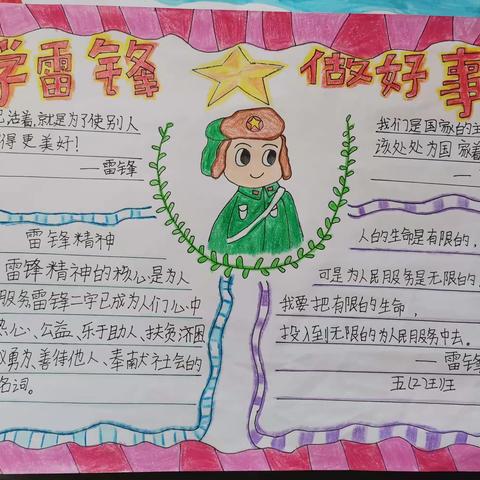 学雷锋 做好事
己活着,就是为了使别人
得更美好!
—雷锋
雷锋精神
雷锋精神的核心是为人
服务雷锋二字已成为人们心中
热心、公益、乐于助人、扶贫济困
义勇为、善待他人、奉献社会的
名词。
我们是国家的主
该处处为国家着
人的生命是有限的,
可是为人民服务是无限的,
我要把有限的生命,
投入到无限的为人民服务中去。
—雷锋
五(2)班